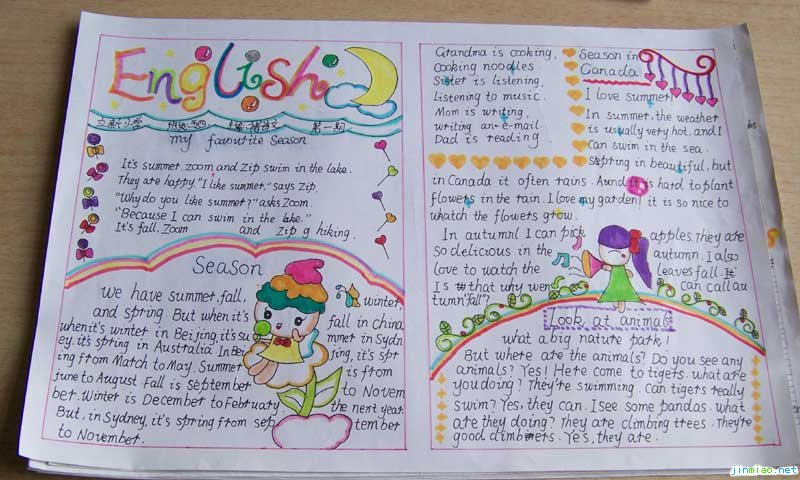 English
第一期
my favourite Season
It's summer. zoom and Zip swim in the lake.
They are happy. "I like summer," says Zip.
"Why do you like summer?" asks Zoom.
"Because I can swim in the lake."
It's fall. Zoom and Zip g hiking.
Season
We have summer, fall, winter,
and spring. But when it's fall in china
when it's winter in Beijing, it's summer in Sydn
ey. it's spring in Australia. In Beijing, it's spr
ing from Match to May. Summer is from
June to August. Fall is September to Novem
ber. Winter is December to February the next year.
But, in Sydney, it's spring from september
to November.
Grandma is cooking,
Cooking noodles
Sister is listening,
Listening to music.
Mom is writing,
writing an e-mail
Dad is reading.
Season in
Canada
I love summer!
In summer, the weather
is usually very hot, and I
can swim in the sea.
spring in beautiful, but
in Canada it often rains. And it is hard to plant
flowers in the rain. I love my garden! it is so nice to
whatch the flowers grow.
In autumn I can pick apples. They are
so delicious in the autumn. I also
love to watch the leaves fall. It
Is that why wen can call au
tumn "fall"?
Look at animals
what a big nature park!
But where are the animals? Do you see any
animals? Yes! Here come to tigers. what are
you doing? They're swimming. Can tigers really
swim? Yes, they can. I see some pandas. what
are they doing? They are climbing trees. They're
good climbers. Yes, they are.
jinmiao.net